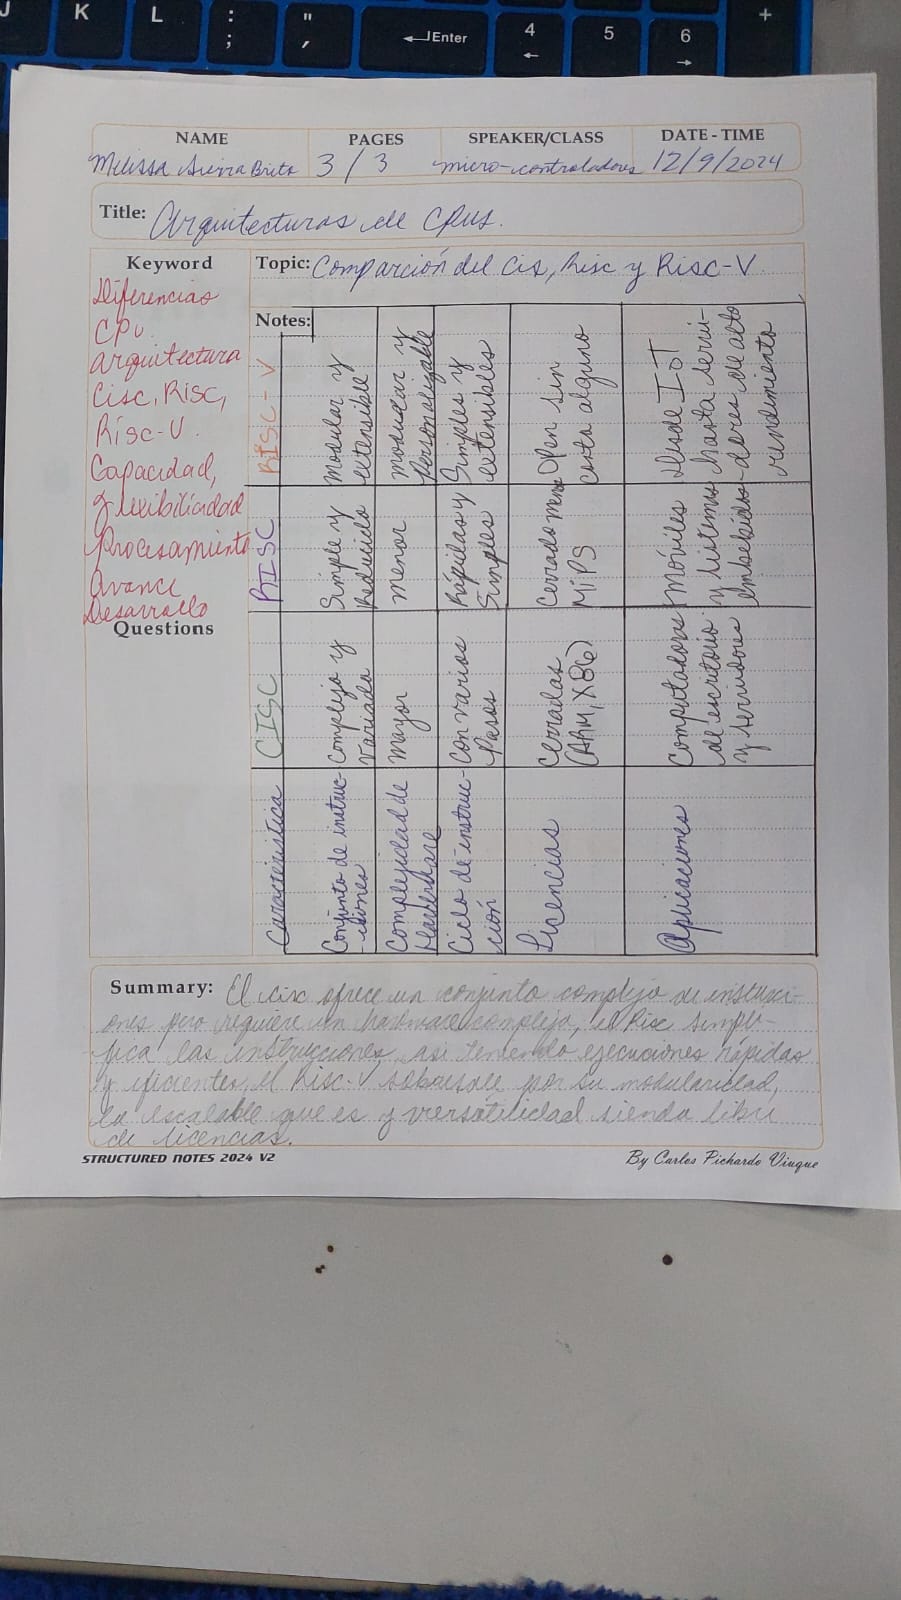 J K L : ; " , Enter 4 ← 5 6 → +
NAME PAGES SPEAKER/CLASS DATE - TIME
Melissa Sierra Brito 3/3 micro-controladores 12/9/2024
Title: Arquitecturas de CPUs.
Keyword
Diferencias
CPU
arquitectura
Cisc, Risc,
Risc-V.
Capacidad,
flexibilidad
Procesamiento
Avance
Desarrollo
Questions
Topic: Comparción del Cis, Risc y Risc-V
Notes:
Característica CISC RISC RISC-V
Conjunto de instruc- Complejo y Simple y Modular y
-ciones Variada Reducido extensible
Complejidad de Mayor Menor modular y
Hardware personalizable
Ciclo de instruc- Con varios Rápidas y Simples y
ción Pasos Simples extensibles
Licencias Cerradas Cerrado menos Open sin
(ARM, X86) MIPS costo alguno
Aplicaciones Computadoras Móviles Desde IoT
de escritorio y sistemas hasta servi-
y servidores embebidos dores de alto
rendimiento
Summary: El cisc ofrece un conjunto complejo de instrucci-
ones pero requiere un hardware complejo, el Risc simpli-
fica las instrucciones, asi teniendo ejecuciones rápidas
y eficientes, el Risc-V sobresale por su modularidad,
lo escalable que es y versatilidad siendo libre
de licencias.
STRUCTURED NOTES 2024 V2 By Carlos Pichardo Viuque